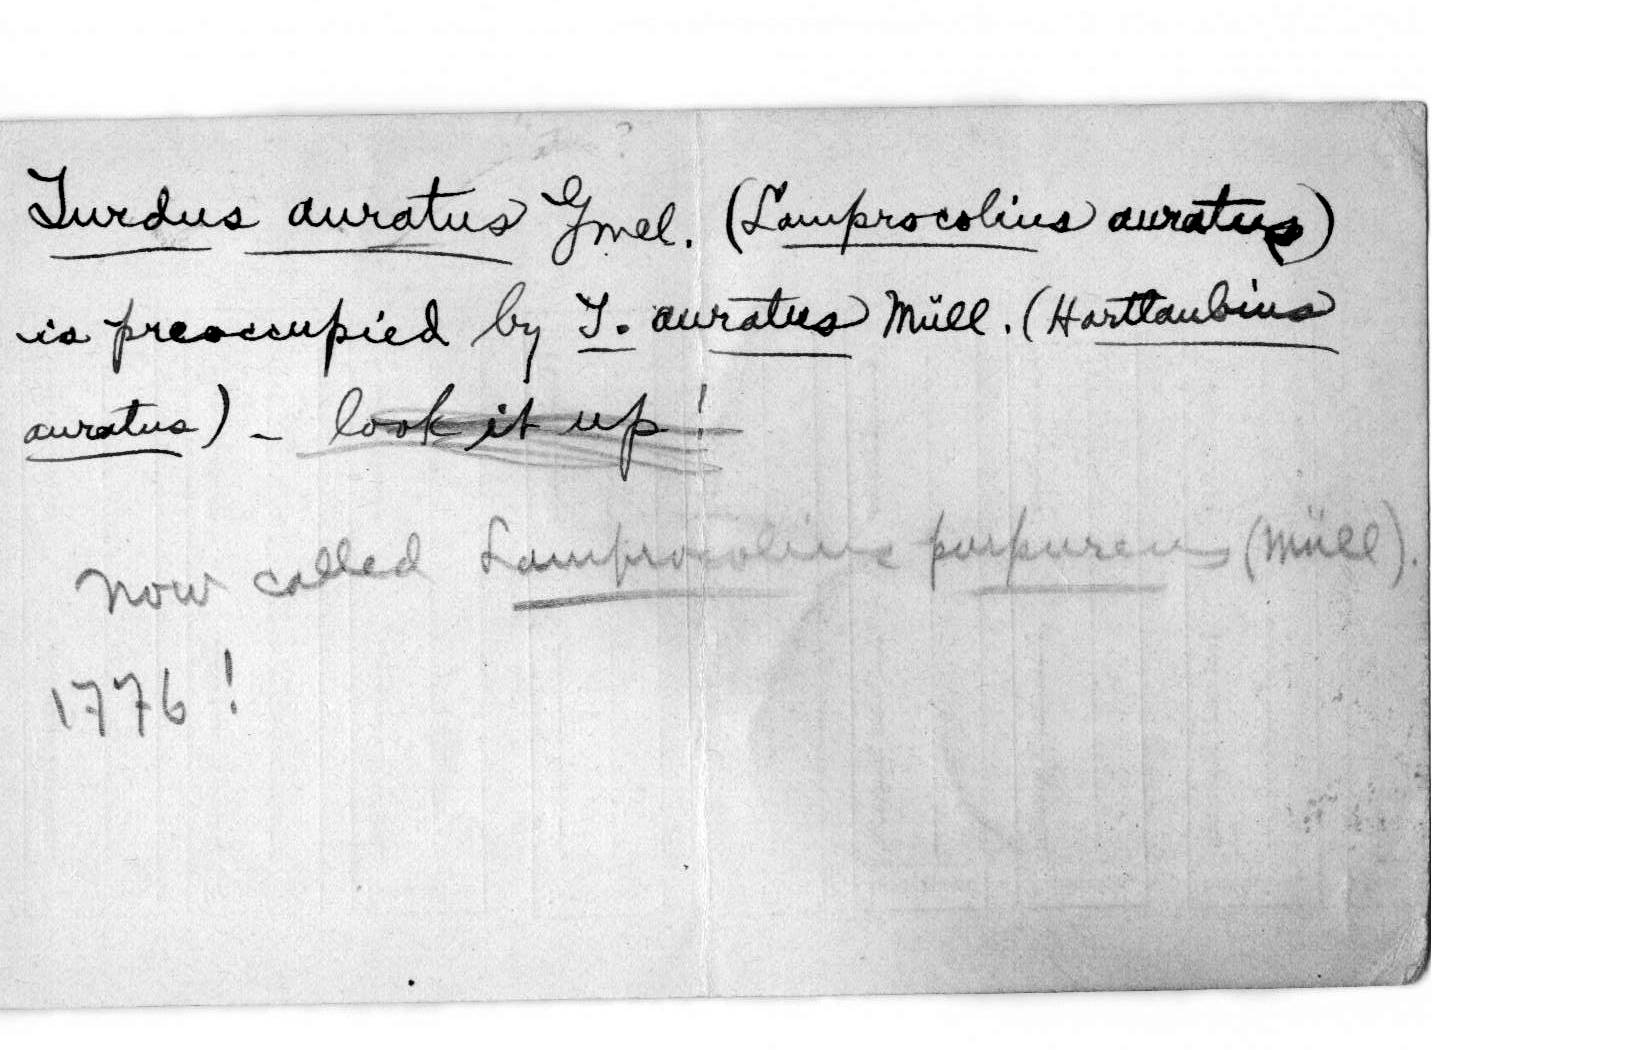 Turdus auratus Gmel. (Lamprocolius auratus)
is preoccupied by T. auratus Müll. (Hartlaubius
auratus) - look it up!
Now called Lamprocolius purpureus (Müll).
1776!